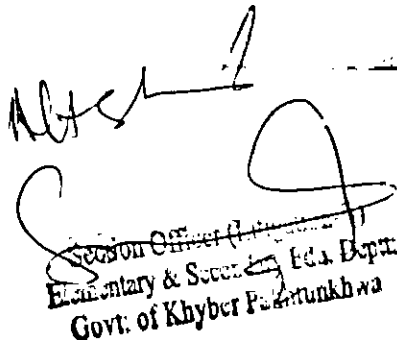 Section Officer (Litigation
Elementary & Secondary Edu. Deptt:
Govt: of Khyber Pakhtunkhwa